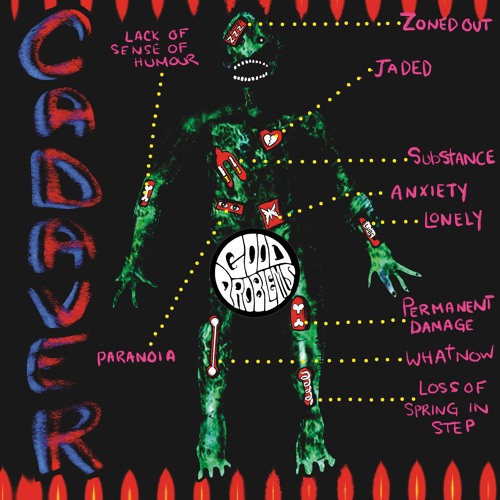 CADAVER
LACK OF
SENSE OF
HUMOUR
ZZZ
ZONED OUT
JADED
SUBSTANCE
ANXIETY
LONELY
GOOD
PROBLEMS
PERMANENT
DAMAGE
PARANOIA
WHAT NOW
LOSS OF
SPRING IN
STEP